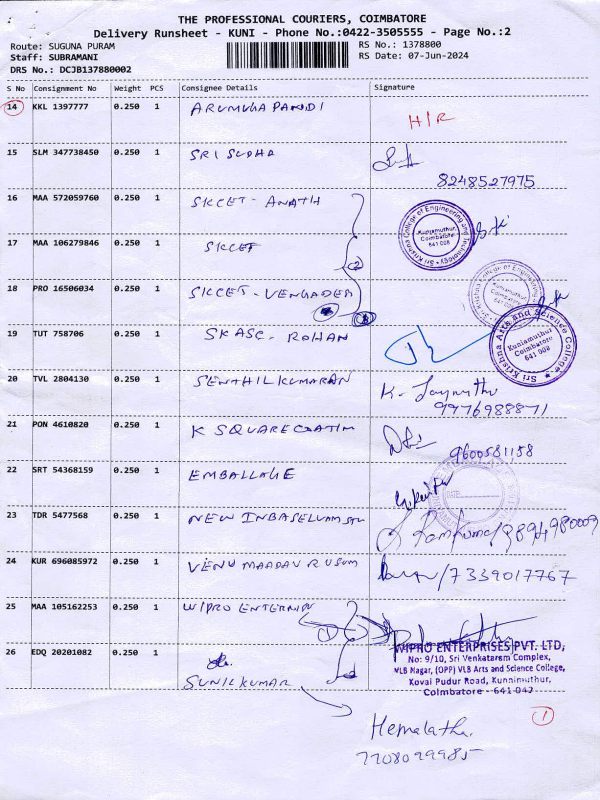 THE PROFESSIONAL COURIERS, COIMBATORE
Delivery Runsheet - KUNI - Phone No.:0422-3505555 - Page No.:2
Route: SUGUNA PURAM
Staff: SUBRAMANI
DRS No.: DCJB137880002
RS No.: 1378800
RS Date: 07-Jun-2024
S No Consignment No Weight PCS Consignee Details Signature
14 KKL 1397777 0.250 1 ARUMUGA PANDI H/R
15 SLM 347738450 0.250 1 SRI SUDHA
8248527975
16 MAA 572059760 0.250 1 SKCET - ANATH
Sri Krishna College of Engineering and Technology
Kuniamuthur, Coimbatore 641 008
17 MAA 106279846 0.250 1 SKCET
2
18 PRO 16506034 0.250 1 SKCET - VENGADER
19 TUT 758706 0.250 1 SKASC - ROHAN
Sri Krishna Arts and Science College
Kuniamuthur Coimbatore 641 008
20 TVL 2804130 0.250 1 SENTHIL KUMARAN
9976988871
21 PON 4610820 0.250 1 K SQUARE
9600581158
22 SRT 54368159 0.250 1 EMBALLAGE
DATE:
23 TDR 5477568 0.250 1 NEW
24 KUR 696085972 0.250 1 VENU MAADAV
/7339017767
25 MAA 105162253 0.250 1 WIPRO
WIPRO ENTERPRISES PVT. LTD,
No: 9/10, Sri Venkataram Complex,
VLB Nagar, (OPP) VLB Arts and Science College,
Kovai Pudur Road, Kuniamuthur,
Coimbatore - 641 042
26 EDQ 20201082 0.250 1 SUNIL KUMAR
1
Hemalatha
7708099985